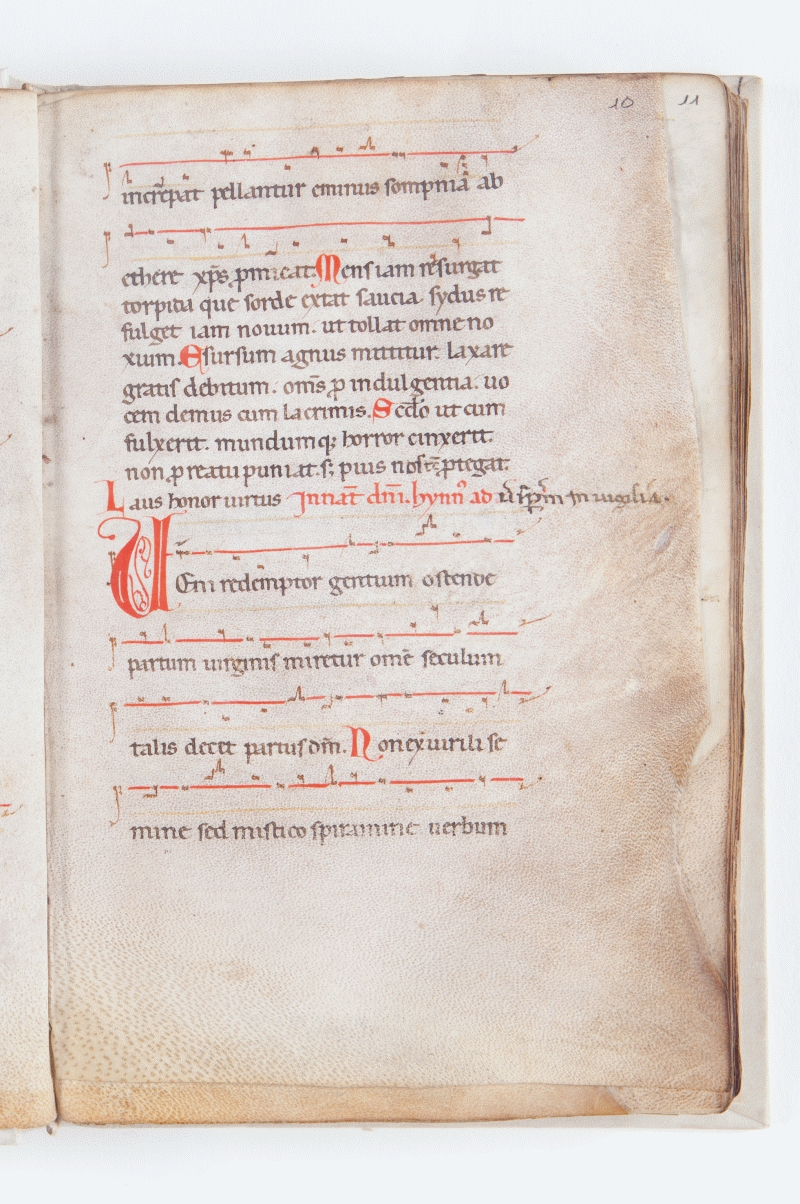 10 11
increpat pellantur eminus sompnia ab
ethere xp̄s promicat. Mens iam resurgat
torpida que sorde extat saucia. sydus re
fulget iam nouum. ut tollat omne no
xium. Esursum agnus mittitur. laxare
gratis debitum. om̄s ꝓ indulgentia. uo
cem demus cum lacrimis. Sc̄do ut cum
fulxerit. mundumq; horror cinxerit.
non ꝓ reatu puniat. s; pius nos tc̄ ꝓtegat.
Laus honor uirtus In nat̄ dn̄i. hymnꝰ ad in uigilia.
Ueni redemptor gentium ostende
partum uirginis miretur om̄e seculum
talis decet partus dm̄. Non ex uirili se
mine sed mistico spiramine uerbum